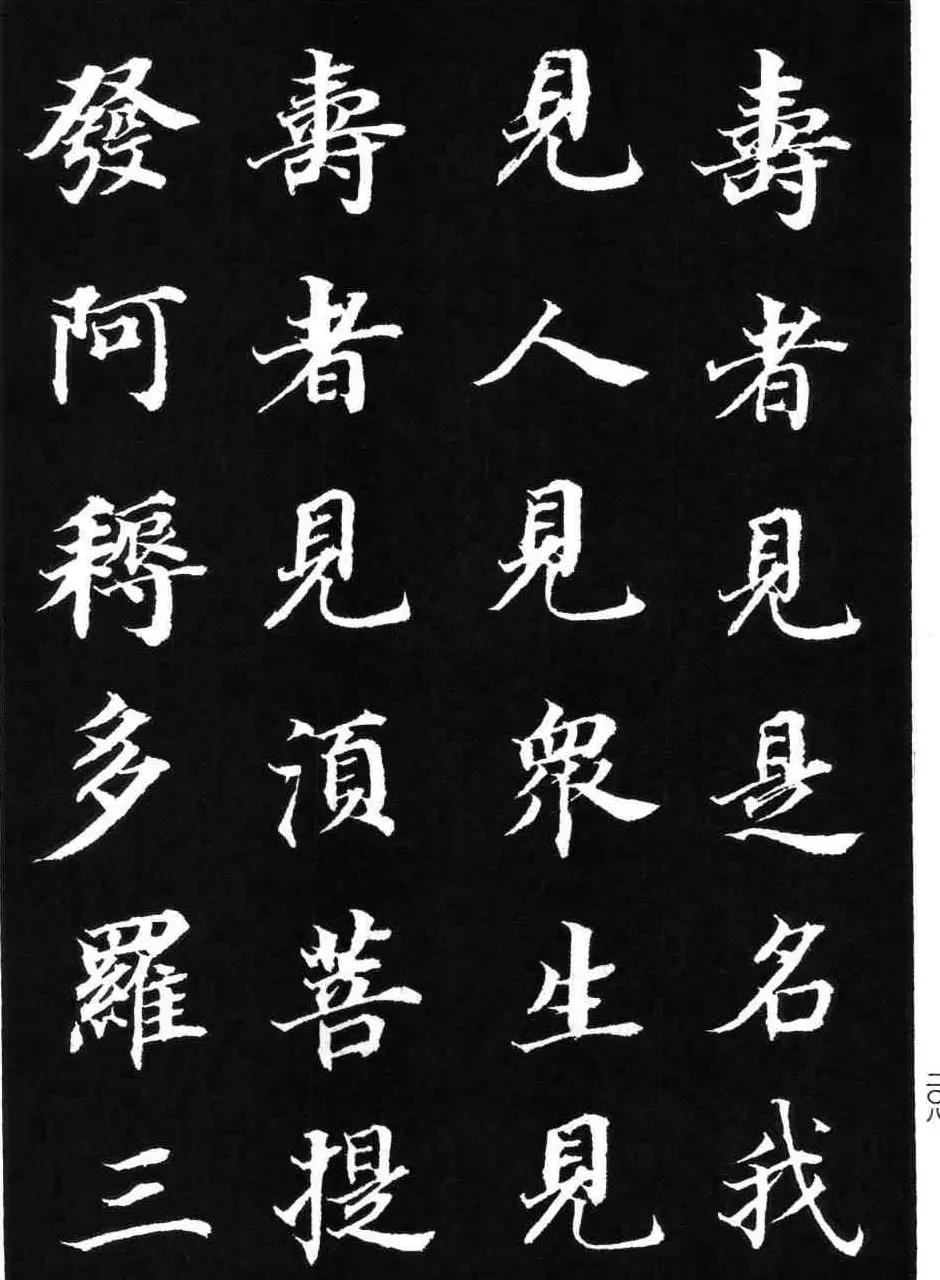 壽者見是名我
見人見眾生見
壽者見須菩提
發阿耨多羅三
二〇八